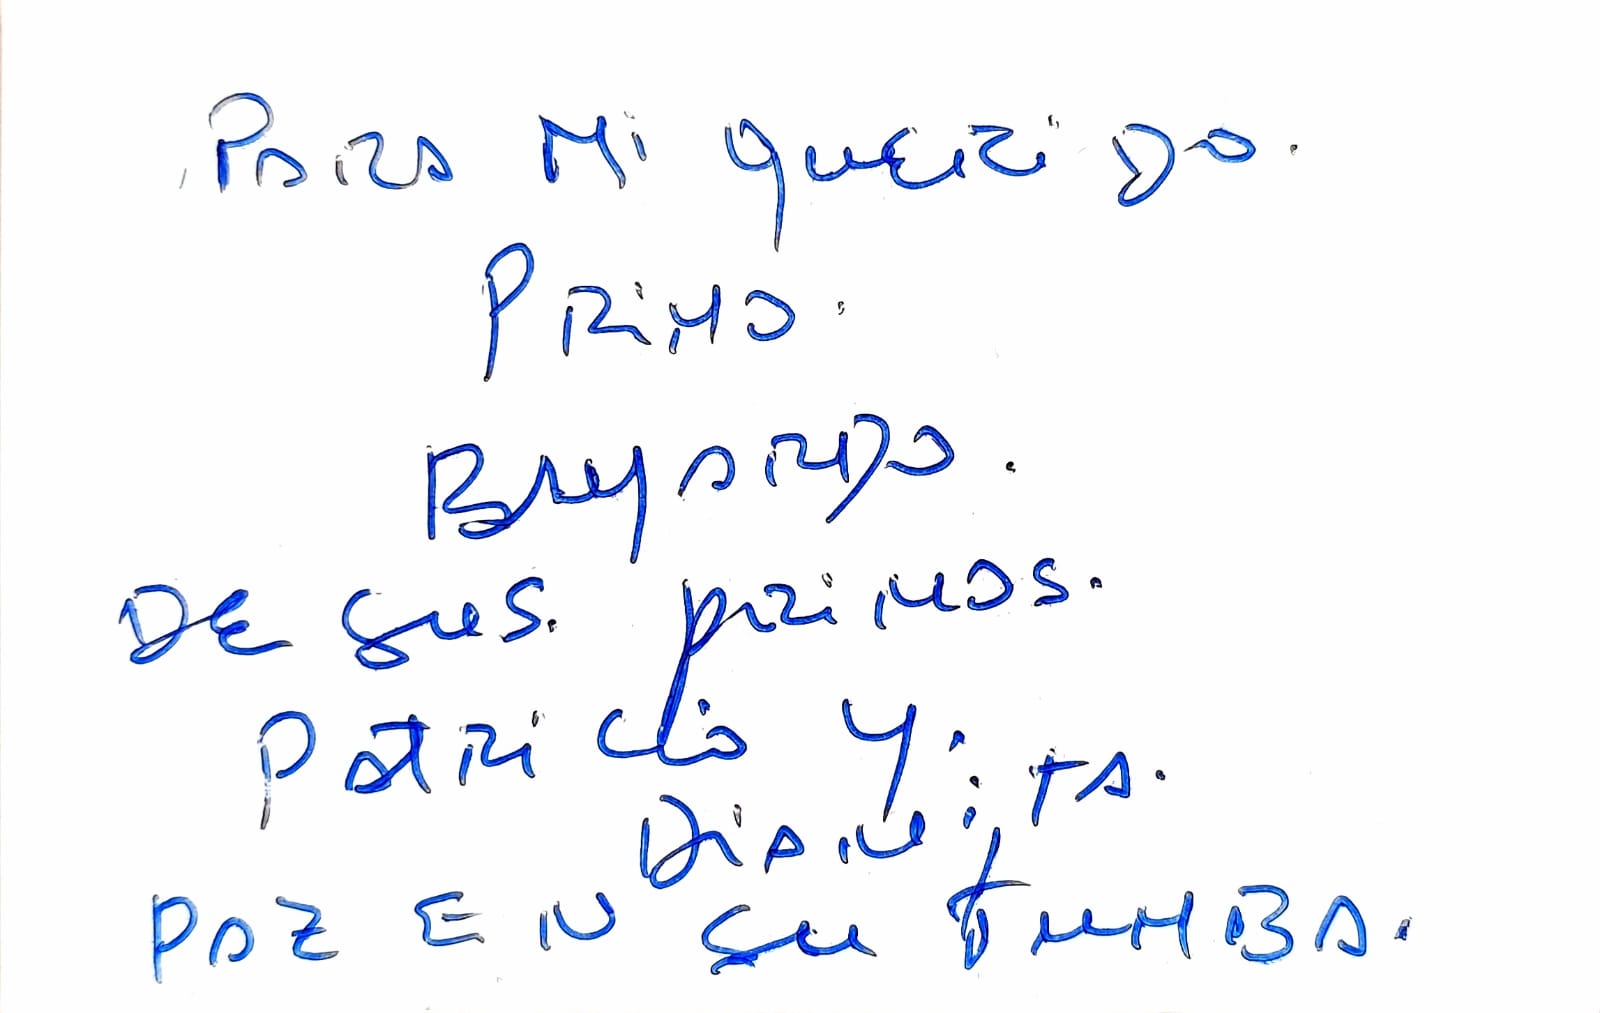 Para mi querido.
Primo.
Bayardo.
De sus. primos.
Patricio y.
Dianita.
Paz en su tumba.